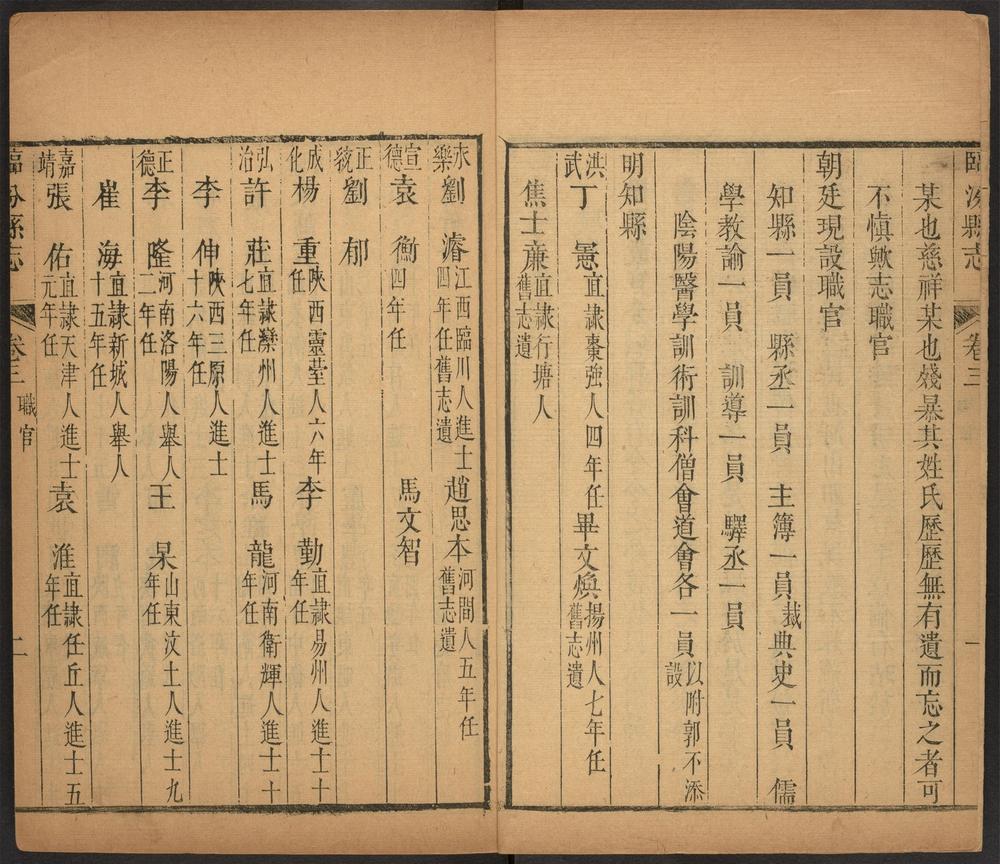 臨汾縣志 卷三 一
某也慈祥某也殘暴其姓氏歷歷無有遺而忘之者可
不慎歟志職官
朝廷現設職官
知縣一員 縣丞一員 主簿一員裁 典史一員 儒
學教諭一員 訓導一員 驛丞一員
陰陽醫學訓術訓科僧會道會各一員以附郭不添設
明知縣
洪武 丁 𢙣直隸棗強人四年任 畢文煥揚州人七年任舊志遺
焦士廉直隸行塘人舊志遺
永樂 劉濬江西臨川人進士四年任舊志遺 趙思本河間人五年任舊志遺
宣德 袁衡四年任 馬文智
正統 劉郁
成化 楊重陝西靈臺人六年任 李勤直隸易州人進士十年任
弘治 許莊直隸灤州人進士七年任 馬龍河南衛輝人進士十年任
李伸陝西三原人進士十六年任
正德 李隆河南洛陽人舉人二年任 王杲山東汶上人進士九年任
崔海直隸新城人舉人十五年任
嘉靖 張佑直隸天津人進士元年任 袁淮直隸任丘人進士五年任
臨汾縣志 卷三 職官 二